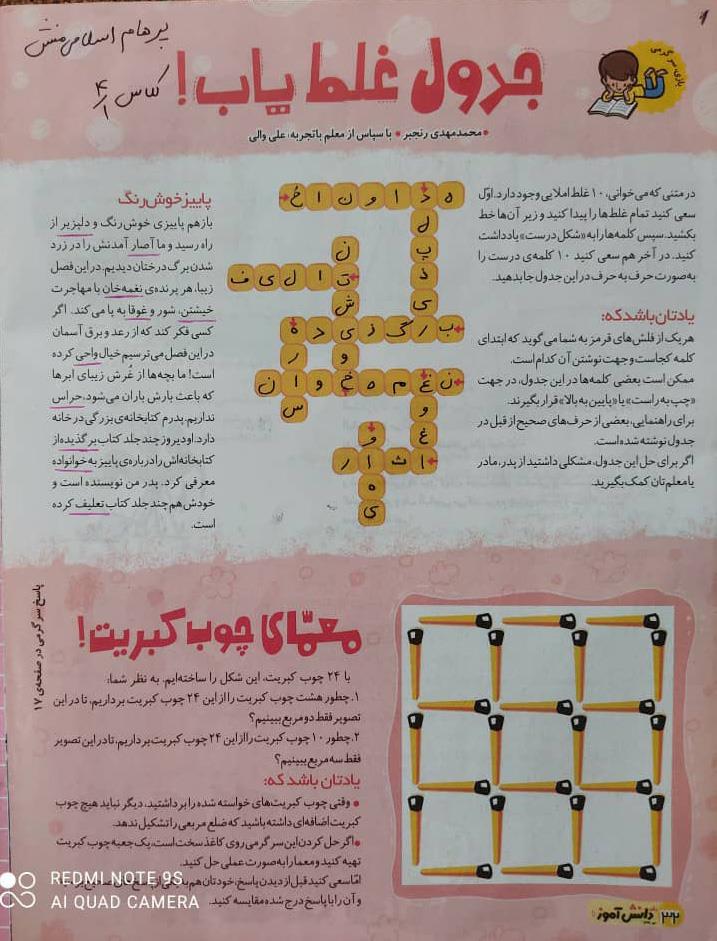 پرهام اسلامی منش
کلاس ۴/۱
بازی، سرگرمی
جدول غلط یاب!
• محمدمهدی رنجبر • با سپاس از معلم باتجربه، علی والی
در متنی که می‌خوانی، ۱۰ غلط املایی وجود دارد. اوّل
سعی کنید تمام غلط‌ها را پیدا کنید و زیر آن‌ها خط
بکشید. سپس کلمه‌ها را به «شکل درست» یادداشت
کنید. در آخر هم سعی کنید ۱۰ کلمه‌ی درست را
به‌صورت حرف به حرف در این جدول جا بدهید.
یادتان باشد که:
هر یک از فلش‌های قرمز به شما می‌گوید که ابتدای
کلمه کجاست و جهت نوشتن آن کدام است.
ممکن است بعضی کلمه‌ها در این جدول، در جهت
«چپ به راست» یا «پایین به بالا» قرار بگیرند.
برای راهنمایی، بعضی از حرف‌های صحیح از قبل در
جدول نوشته شده است.
اگر برای حل این جدول، مشکلی داشتید از پدر، مادر
یا معلم‌تان کمک بگیرید.
ه د ا و ن ا خ
ل
پ ن
ذ ت ا ل ی ف
ی ش
ب ر گ ز ی د ه
و ر
ن غ م ه خ و ا ن
و س
غ و
ا ث ا ر
ه
ی
پاییز خوش رنگ
باز هم پاییزی خوش رنگ و دلپزیر از
راه رسید و ما آصار آمدنش را در زرد
شدن برگ درختان دیدیم. در این فصل
زیبا، هر پرنده‌ی نغمه‌خان با مهاجرت
خیشتن، شور و غوقا به پا می‌کند. اگر
کسی فکر کند که از رعد و برق آسمان
در این فصل می‌ترسیم خیال واحی کرده
است! ما بچه‌ها از غُرش زیبای ابرها
که باعث بارش باران می‌شود، حراس
نداریم. پدرم کتابخانه‌ی بزرگی در خانه
دارد. او دیروز چند جلد کتاب برگذیده از
کتابخانه‌اش را درباره‌ی پاییز به خوانواده
معرفی کرد. پدر من نویسنده است و
خودش هم چند جلد کتاب تعلیف کرده
است.
معمّای چوب کبریت!
با ۲۴ چوب کبریت، این شکل را ساخته‌ایم. به نظر شما:
۱. چطور هشت چوب کبریت را از این ۲۴ چوب کبریت برداریم، تا در این
تصویر فقط دو مربع ببینیم؟
۲. چطور ۱۰ چوب کبریت را از این ۲۴ چوب کبریت برداریم، تا در این تصویر
فقط سه مربع ببینیم؟
یادتان باشد که:
• وقتی چوب کبریت‌های خواسته شده را برداشتید، دیگر نباید هیچ چوب
کبریت اضافه‌ای داشته باشید که ضلع مربعی را تشکیل ندهد.
• اگر حل کردن این سرگرمی روی کاغذ سخت است، یک جعبه چوب کبریت
تهیه کنید و معما را به صورت عملی حل کنید.
امّا سعی کنید قبل از دیدن پاسخ، خودتان هم به
و آن را با پاسخ درج شده مقایسه کنید.
پاسخ سرگرمی در صفحه‌ی ۱۷
۳۲ دانش آموز
REDMI NOTE 9S
AI QUAD CAMERA